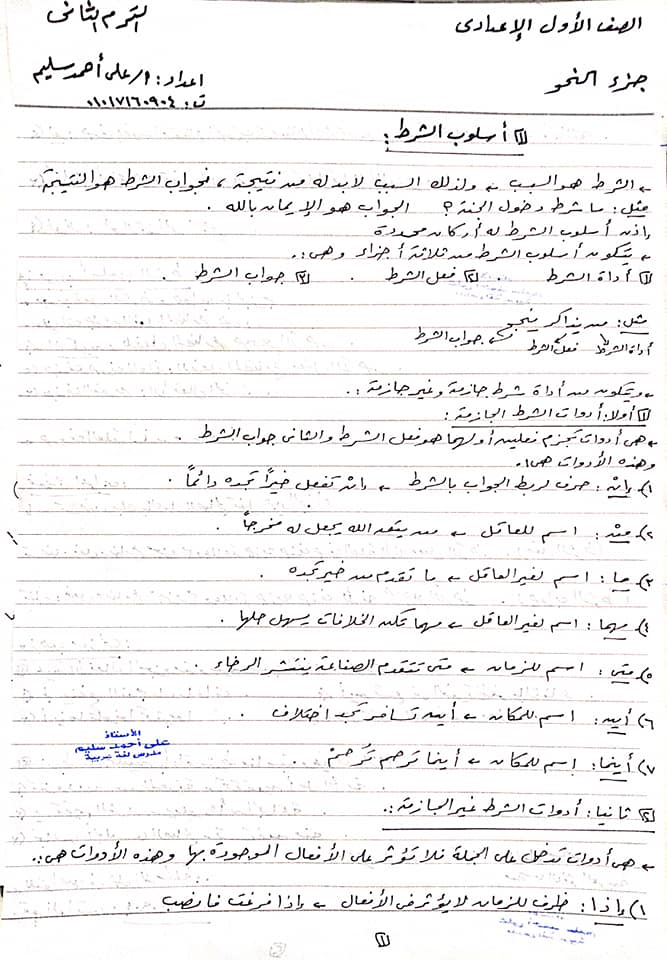 الصف الأول الإعدادى
الترم الثانى
جزء النحو
اعداد: أ/على أحمد سليم
ت: ٠١٠١٧١٦٠٩٠٤
١) أسلوب الشرط:
← الشرط هو السبب ← ولذلك السبب لابد له من نتيجة، فجواب الشرط هو النتيجة
مثل: ما شرط دخول الجنة؟ الجواب هو الإيمان بالله.
إذن أسلوب الشرط له أركان محددة
← يتكون أسلوب الشرط من ثلاثة أجزاء وهى:.
١) أداة الشرط . ٢) فعل الشرط . ٣) جواب الشرط .
مثل: من يذاكر ينجح
أداة الشرط فعل الشرط جواب الشرط
← ويتكون من أداة شرط جازمة وغير جازمة:.
١) أولا: أدوات الشرط الجازمة:
← هى أدوات تجزم فعلين أولهما هو فعل الشرط والثانى جواب الشرط .
وهذه الأدوات هى:.
١) إنْ: حرف لربط الجواب بالشرط ← إنْ تفعل خيراً تجده دائماً .
٢) منْ: اسم للعاقل ← من يتق الله يجعل له مخرجاً .
٣) ما: اسم لغير العاقل ← ما تقدم من خير تجده .
٤) مهما: اسم لغير العاقل ← مهما تكن الخلافات يسهل حلها .
٥) متى: اسم للزمان ← متى تتقدم الصناعة ينتشر الرخاء .
٦) أين: اسم للمكان ← أين تسافر تجد اختلاف .
٧) أينما: اسم للمكان ← أينما ترحم تُرحمْ .
الأستاذ
على أحمد سليم
مدرس لغة عربية
٢) ثانيا: أدوات الشرط غير الجازمة:.
← هى أدوات تدخل على الجملة فلا تؤثر على الأفعال الموجودة بها وهذه الأدوات هى:.
١) إذا: ظرف للزمان لا يؤثر فى الأفعال ← إذا فرغت فانصب
١